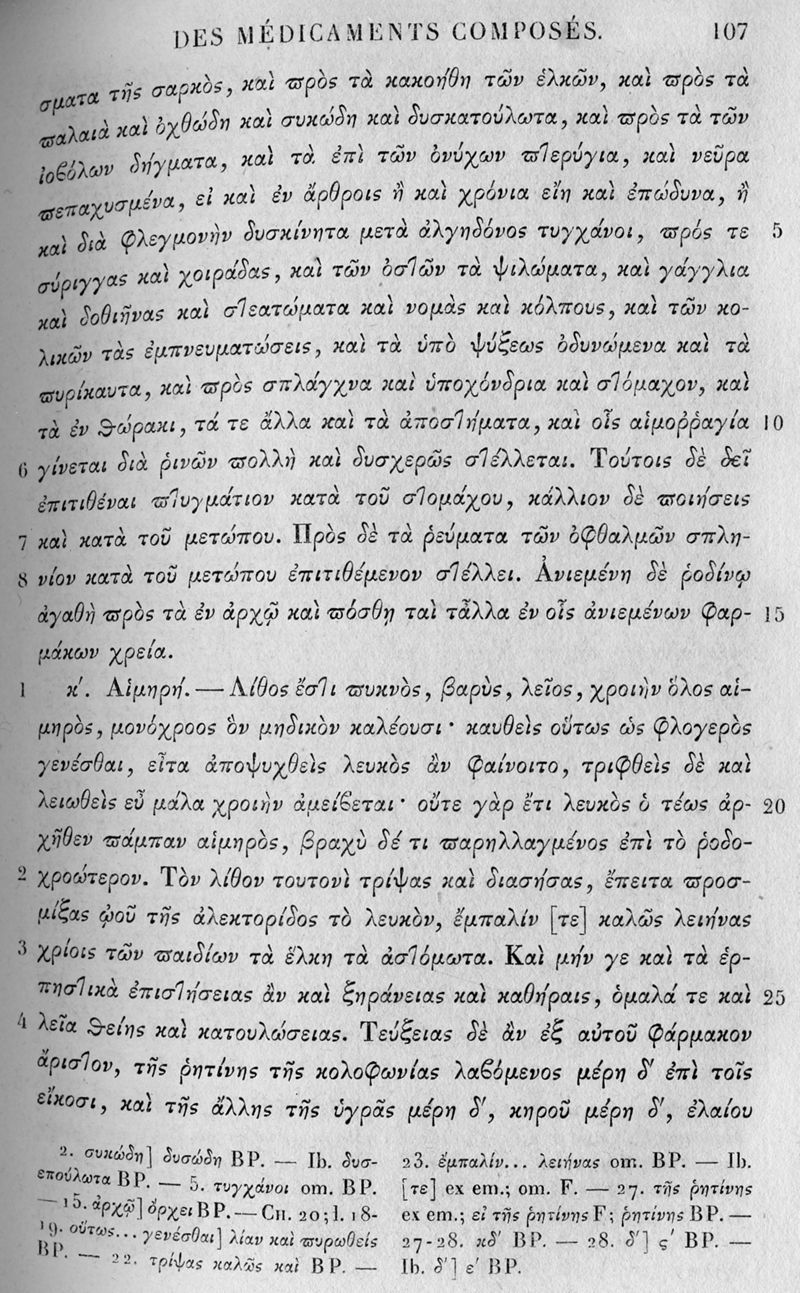 DES MÉDICAMENTS COMPOSÉS. 107
σματα τῆς σαρκὸς, καὶ πρὸς τὰ κακοήθη τῶν ἑλκῶν, καὶ πρὸς τὰ
παλαιὰ καὶ ὀχθώδη καὶ συκώδη καὶ δυσκατούλωτα, καὶ πρὸς τὰ τῶν
ἰοβόλων δήγματα, καὶ τὰ ἐπὶ τῶν ὀνύχων πτερύγια, καὶ νεῦρα
πεπαχυσμένα, εἰ καὶ ἐν ἄρθροις ἢ καὶ χρόνια εἴη καὶ ἐπώδυνα, ἢ
καὶ διὰ φλεγμονὴν δυσκίνητα μετὰ ἀλγηδόνος τυγχάνοι, πρός τε 5
σύριγγας καὶ χοιράδας, καὶ τῶν ὀστῶν τὰ ψιλώματα, καὶ γάγγλια
καὶ δοθιῆνας καὶ στεατώματα καὶ νομὰς καὶ κόλπους, καὶ τῶν κο-
λικῶν τὰς ἐμπνευματώσεις, καὶ τὰ ὑπὸ ψύξεως ὀδυνώμενα καὶ τὰ
πυρίκαυτα, καὶ πρὸς σπλάγχνα καὶ ὑποχόνδρια καὶ στόμαχον, καὶ
τὰ ἐν θώρακι, τά τε ἄλλα καὶ τὰ ἀποστήματα, καὶ οἷς αἱμοῤῥαγία 10
6 γίνεται διὰ ῥινῶν πολλὴ καὶ δυσχερῶς στέλλεται. Τούτοις δὲ δεῖ
ἐπιτιθέναι πτυγμάτιον κατὰ τοῦ στομάχου, κάλλιον δὲ ποιήσεις
7 καὶ κατὰ τοῦ μετώπου. Πρὸς δὲ τὰ ῥεύματα τῶν ὀφθαλμῶν σπλη-
8 νίον κατὰ τοῦ μετώπου ἐπιτιθέμενον στέλλει. Ἀνιεμένη δὲ ῥοδίνῳ
ἀγαθὴ πρὸς τὰ ἐν ἀρχῷ καὶ πόσθῃ ταὶ τἆλλα ἐν οἷς ἀνιεμένων φαρ- 15
μάκων χρεία.
1 κʹ. Αἱμηρή. — Λίθος ἔστι πυκνὸς, βαρὺς, λεῖος, χροιὴν ὅλος αἱ-
μηρὸς, μονόχροος ὃν μηδικὸν καλέουσι · καυθεὶς οὕτως ὡς φλογερὸς
γενέσθαι, εἶτα ἀποψυχθεὶς λευκὸς ἂν φαίνοιτο, τριφθεὶς δὲ καὶ
λειωθεὶς εὖ μάλα χροιὴν ἀμείβεται · οὔτε γὰρ ἔτι λευκὸς ὁ τέως ἀρ- 20
χῆθεν πάμπαν αἱμηρὸς, βραχὺ δέ τι παρηλλαγμένος ἐπὶ τὸ ῥοδο-
2 χροώτερον. Τὸν λίθον τουτονὶ τρίψας καὶ διασήσας, ἔπειτα προσ-
μίξας ᾠοῦ τῆς ἀλεκτορίδος τὸ λευκὸν, ἔμπαλίν [τε] καλῶς λειήνας
3 χρίοις τῶν παιδίων τὰ ἕλκη τὰ ἀστόμωτα. Καὶ μήν γε καὶ τὰ ἑρ-
πηστικὰ ἐπιστήσειας ἂν καὶ ξηράνειας καὶ καθήραις, ὁμαλά τε καὶ 25
4 λεῖα θείης καὶ κατουλώσειας. Τεύξειας δὲ ἂν ἐξ αὐτοῦ φάρμακον
ἄριστον, τῆς ῥητίνης τῆς κολοφωνίας λαβόμενος μέρη δʹ ἐπὶ τοῖς
εἴκοσι, καὶ τῆς ἄλλης τῆς ὑγρᾶς μέρη δʹ, κηροῦ μέρη δʹ, ἐλαίου
2. συκώδη] δυσώδη BP. — Ib. δυσ-
επούλωτα BP. — 5. τυγχάνοι om. BP.
— 15. ἀρχῷ] ὄρχει BP. — CH. 20; l. 18-
19. οὕτως... γενέσθαι] λίαν καὶ πυρωθείς
BP. — 22. τρίψας καλῶς καὶ BP. —
23. ἔμπαλίν... λειήνας om. BP. — Ib.
[τε] ex em.; om. F. — 27. τῆς ῥητίνης
ex em.; εἰ τῆς ῥητίνης F; ῥητίνης BP. —
27-28. κδʹ BP. — 28. δʹ] ςʹ BP. —
Ib. δʹ] εʹ BP.